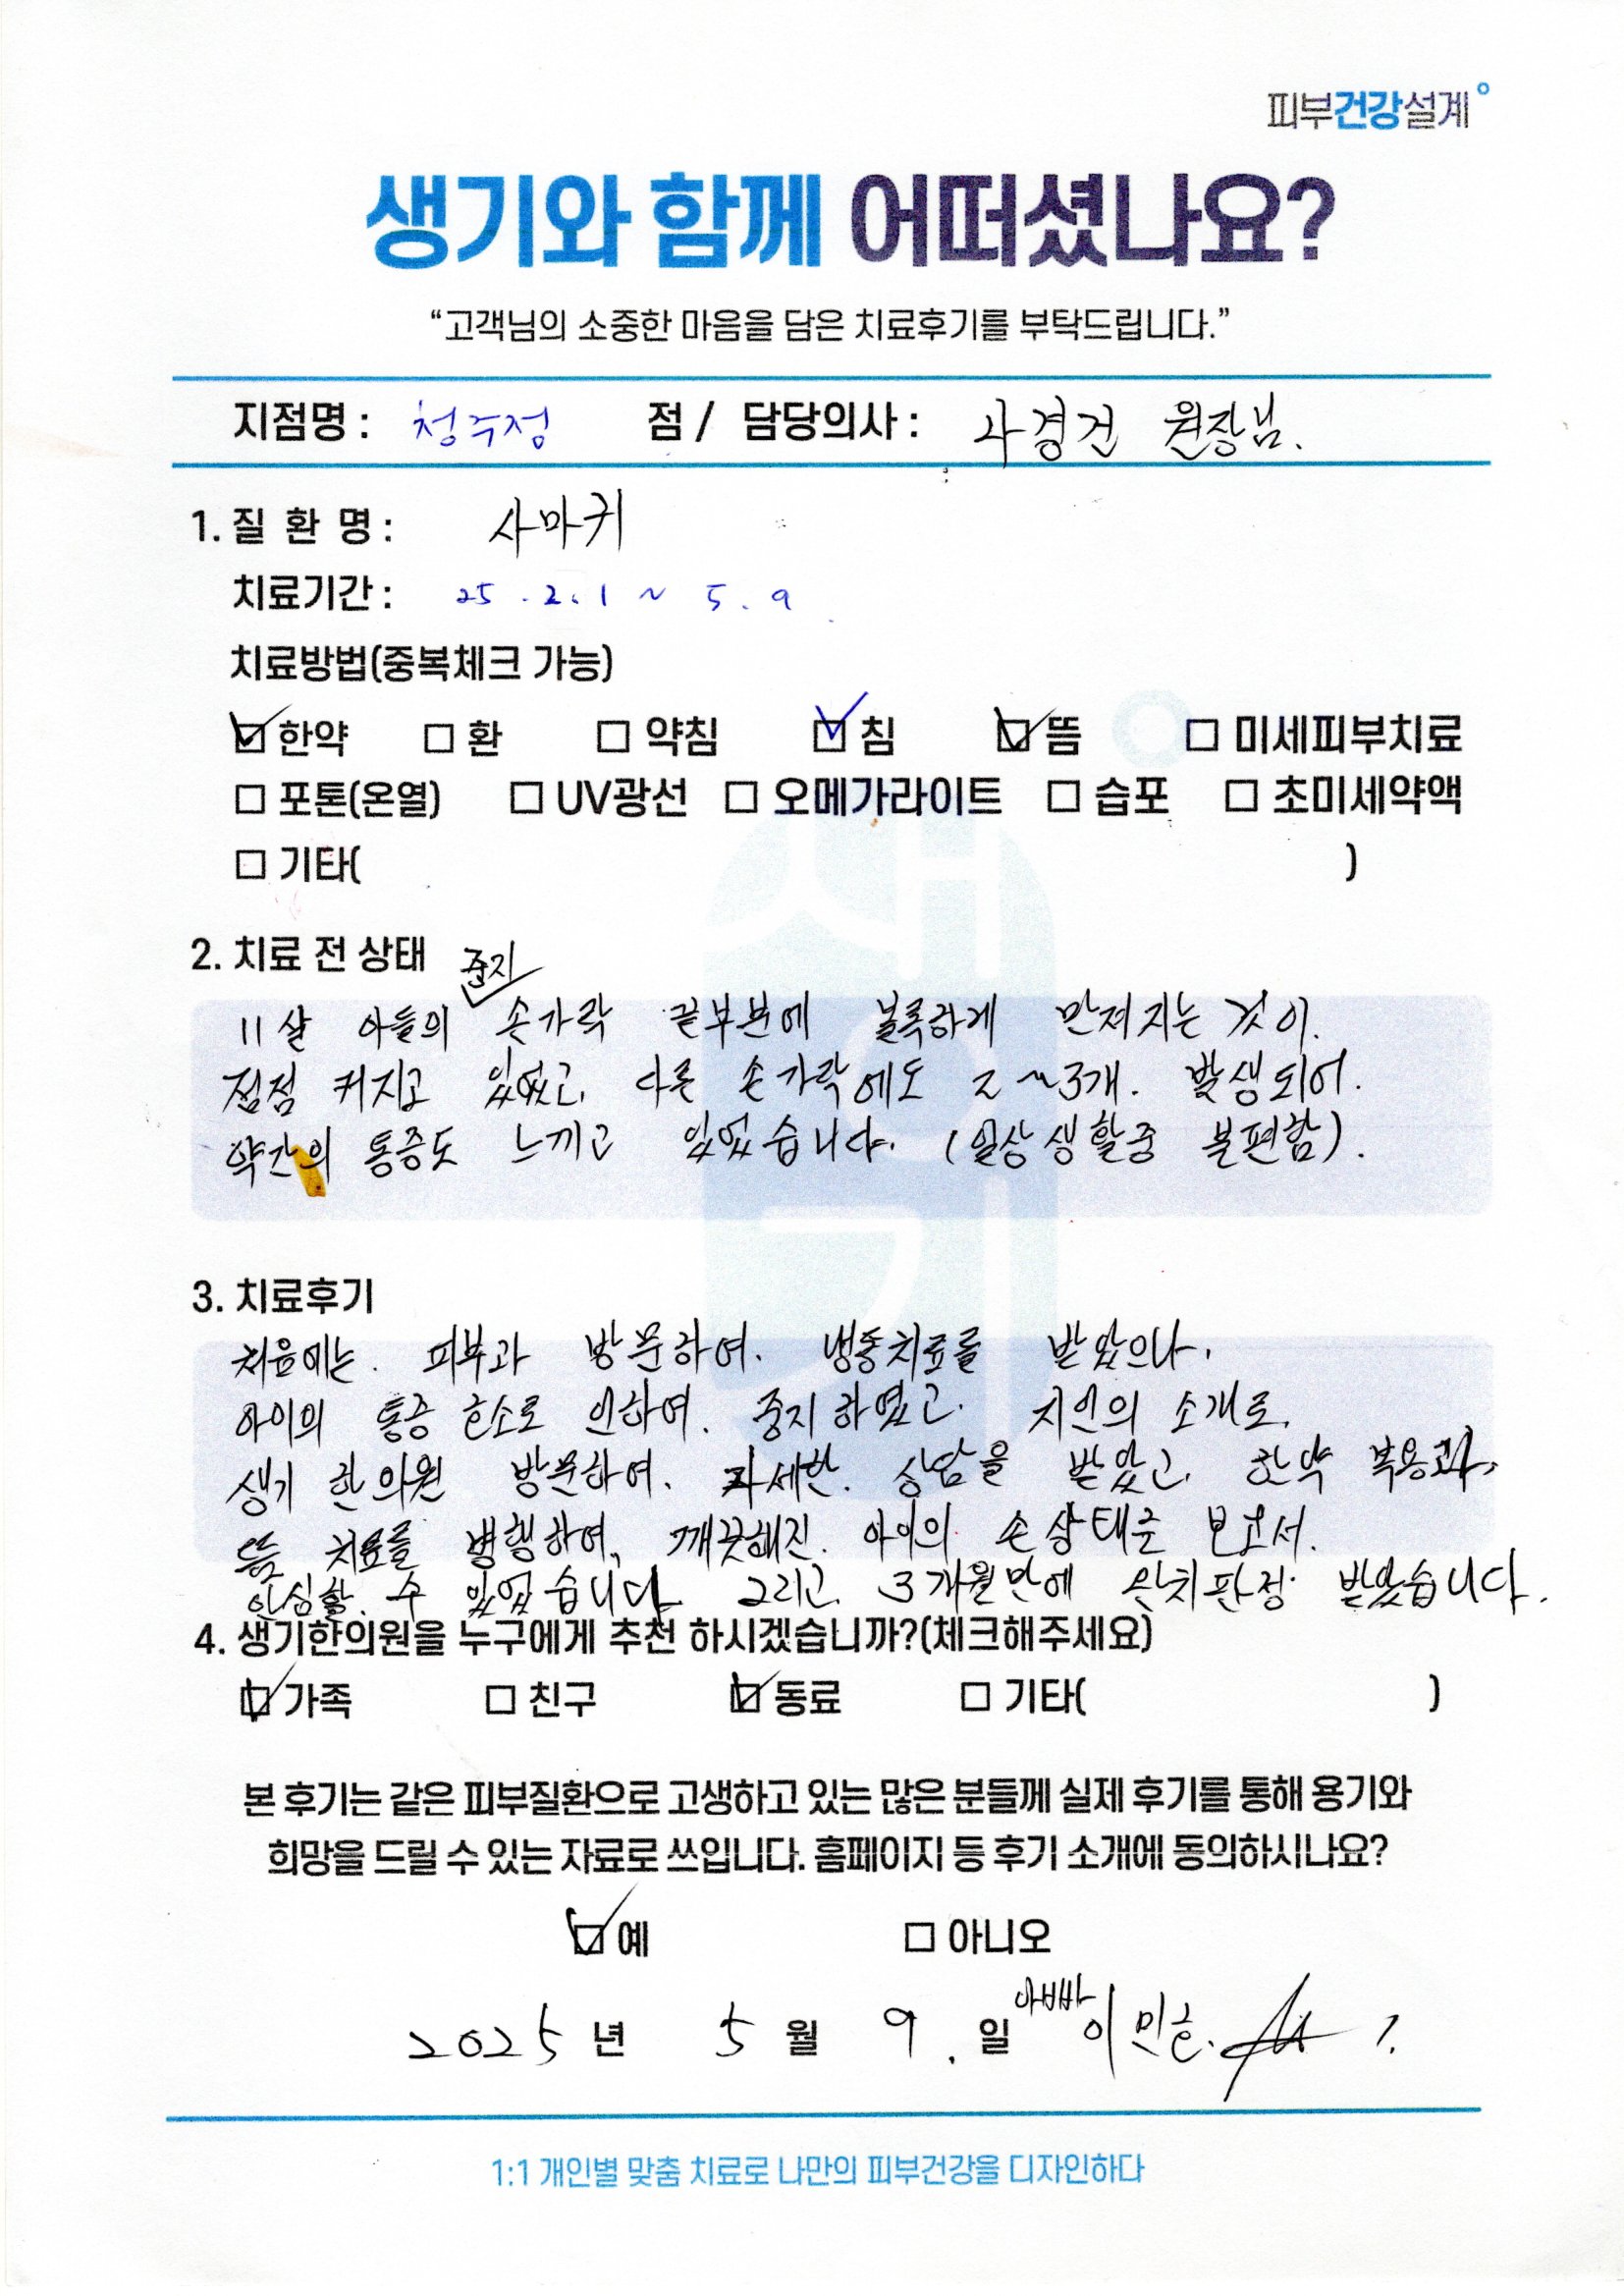 피부건강설계
생기와 함께 어떠셨나요?
“고객님의 소중한 마음을 담은 치료후기를 부탁드립니다.”
지점명 : 청주점 점 / 담당의사 : 곽경건 원장님.
1. 질 환 명 : 사마귀
치료기간 : 25 . 2. 1 ~ 5. 9
치료방법(중복체크 가능)
한약 환 약침 침 뜸 미세피부치료
포톤(온열) UV광선 오메가라이트 습포 초미세약액
기타( )
2. 치료 전 상태
준지
11살 아들의 손가락 끝부분에 볼록하게 만져지는 것이.
점점 커지고 있었고, 다른 손가락에도 2~3개. 발생되어.
약간의 통증도 느끼고 있었습니다. (일상생활중 불편함).
3. 치료후기
처음에는. 피부과 방문하여. 냉동치료를 받았으나.
아이의 통증 호소로 인하여. 중지하였고. 지인의 소개로.
생기 한의원 방문하여. 자세한. 상담을 받았고, 한약 복용과,
뜸 치료를 병행하여, 깨끗해진. 아이의 손상태를 보고서.
안심할. 수 있었습니다. 그리고, 3개월만에 완치판정 받았습니다.
4. 생기한의원을 누구에게 추천 하시겠습니까?(체크해주세요)
가족 친구 동료 기타( )
본 후기는 같은 피부질환으로 고생하고 있는 많은 분들께 실제 후기를 통해 용기와
희망을 드릴 수 있는 자료로 쓰입니다. 홈페이지 등 후기 소개에 동의하시나요?
예 아니오
2025 년 5 월 9 . 일 아빠 이민호.
1:1 개인별 맞춤 치료로 나만의 피부건강을 디자인하다